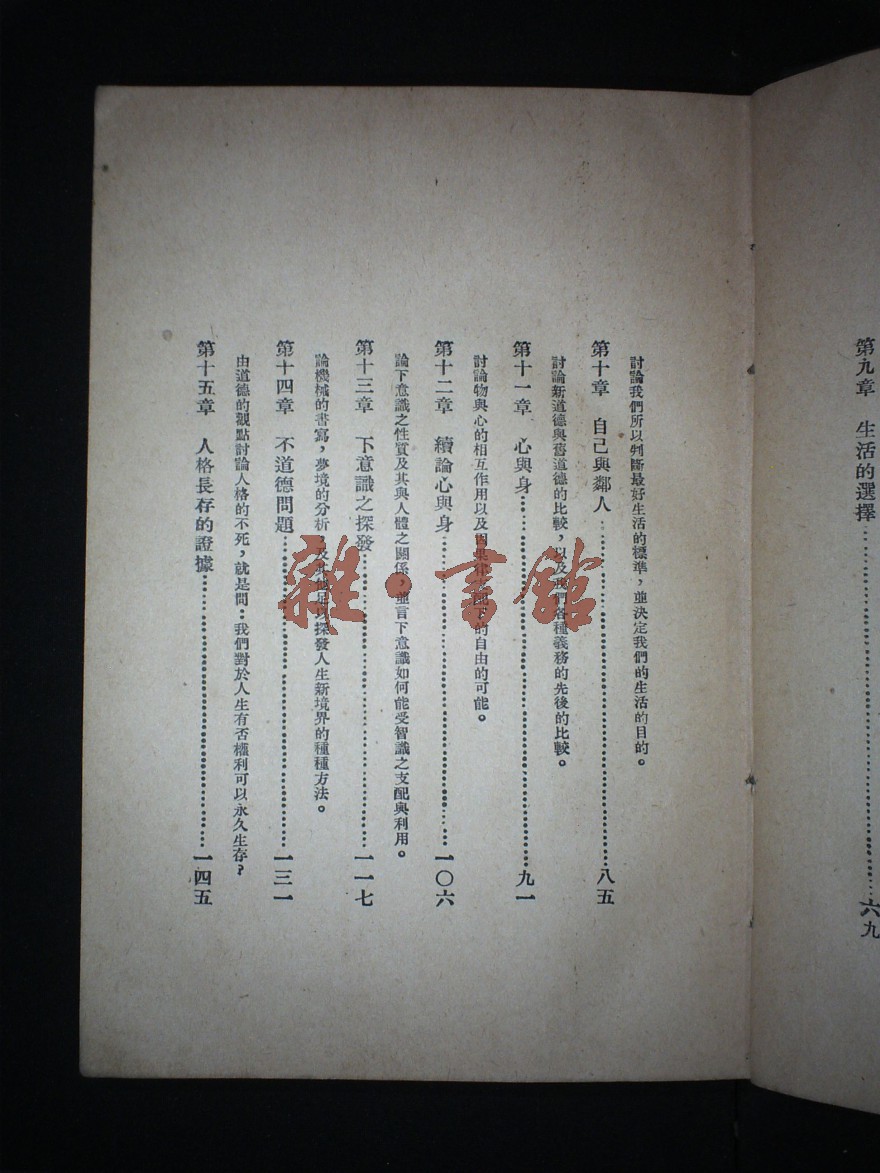 第九章　生活的選擇……六九
討論我們所以判斷最好生活的標準，並決定我們的生活的目的。
第十章　自己與鄰人……八五
討論新道德與舊道德的比較，以及我們各種義務的先後的比較。
第十一章　心與身……九一
討論物與心的相互作用以及因果律支配下的自由的可能。
第十二章　續論心與身……一〇六
論下意識之性質及其與人體之關係，並言下意識如何能受智識之支配與利用。
第十三章　下意識之探發……一一七
論機械的書寫，夢境的分析，及其他足以探發人生新境界的種種方法。
第十四章　不道德問題……一三一
由道德的觀點討論人格的不死，就是問：我們對於人生有否權利可以永久生存？
第十五章　人格長存的證據……一四五
雜·書館